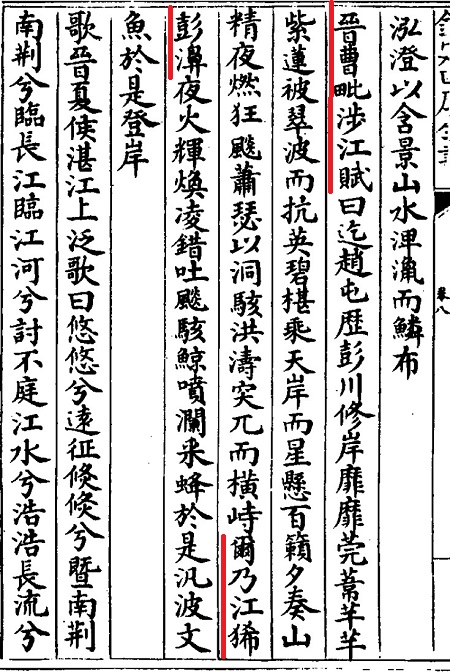 泓澄以含景山水渾漁而鱗布
晉曹毗涉江賦曰迄趙屯歷彭川修岸靡靡莞葦芊芊
紫蓮被翠波而抗英碧椹乘天岸而星懸百籟夕奏山
精夜燃狂飈蕭瑟以洞駭洪濤突兀而橫峙爾乃江狶
彭濞夜火輝煥凌錯吐飈駭鯨噴瀾釆蜂於是汎波文
魚於是登岸
歌晉夏侯湛江上泛歌曰悠悠兮遠征倐倐兮暨南荆
南荆兮臨長江臨江河兮討不庭江水兮浩浩長流兮
卷八